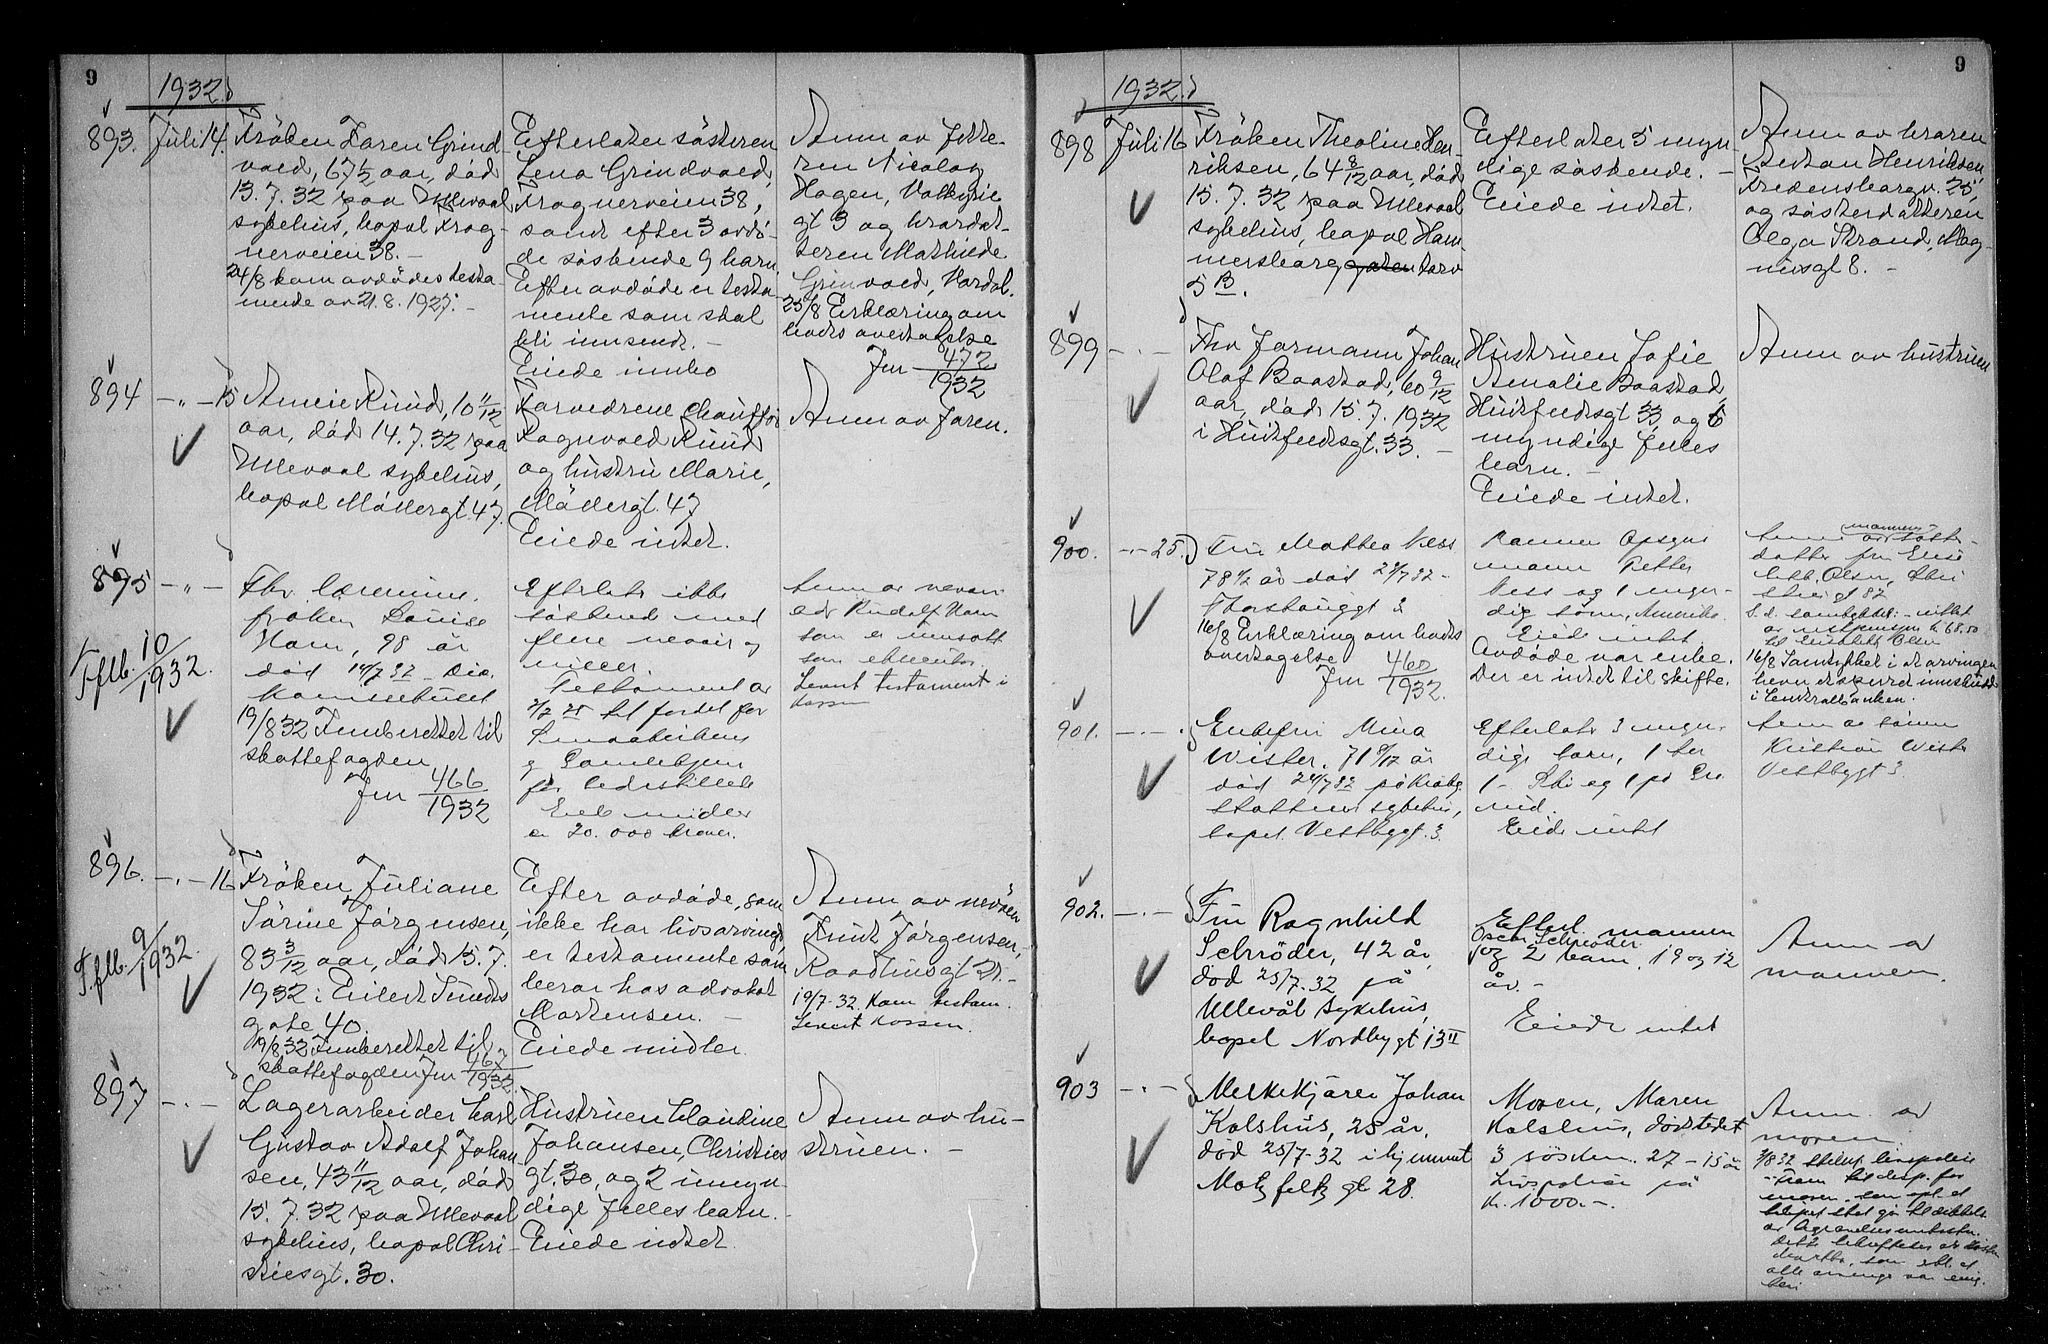 9
1932.
893. Juli 14. Frøken Karen Grind-
vold, 67 1/2 aar, død
13.7.32 paa Ullevaal
sykehus, bopæl Frog-
nerveien 38. -
24/8 kom avdødes testa-
mente av 21.8.1927. -
Efterlater søsteren
Lena Grindvold,
Frognerveien 38,
samt efter 3 avdø-
de søskende 9 barn.
Efter avdøde er testa-
mente som skal
bli innsendt. -
Eiede innbo
Anm av fette-
ren Nicolay
Hagen, Valkyrie
gt 3 og brordat-
teren Mathilde
Grinvold,
25/8 Erklæring om
bods overtagelse
Jnr 472/1932
894 -"- 15 Annie Ruud, 10 11/12
aar, død 14.7.32 paa
Ullevaal sykehus,
bopæl Møllergt. 47.
Forældrene Chauffør
Ragnvald Ruud
og hustru Marie,
Møllergt. 47
Eiede intet.
Anm av faren.
895 -"-
Tflb. 10/1932.
Fhv.
frøken Louise
Ham, 98 år
død 14/7 32
19/8 32 Innberettet til
skattefogden
Jnr 466/1932
Efterlater ikke
søskend med
flere nevøer og
niecer.
Testament av
til fordel for
og Gamlehjem
for
er 20.000 kroner.
Anm av nevøen
Rudolf Ham
som er innsatt
som eksekutor.
Levert testament i
kassen
896. -"- 16
Tflb. 9/1932.
Frøken Juliane
Sørine Jørgensen,
83 3/12 aar, død 15.7.
1932 i Eilert Sundts
gate 40.
19/8 32 Innberettet til
skattefogden Jnr 467/1932.
Efter avdøde, som
ikke har livsarvinger,
er testamente som
beror hos advokat
Mortensen. -
Eiede midler.
Anm av nevøen
Knut Jørgensen,
Raadhusgt 21. -
19/7-32. Kom testam.
Levert kassen.
897 -"- Lagerarbeider Karl
Gustav Adolf Johan-
sen, 43 11/12 aar, død
15.7.32 paa Ullevaal
sykehus, bopæl Chri-
stiesgt. 30.
Hustruen Claudine
Johansen, Christies
gt. 30, og 2 umyn-
dige fælles barn. -
Eiede intet.
Anm av hu-
struen. -
9
1932.
898 Juli 16 Frøken Theoline Hen-
riksen, 64 8/12 aar, død
15.7.32 paa Ullevaal
sykehus, bopæl Ham-
mersborg gaten torv
5 B.
Efterlater 5 myn-
dige søskende. -
Eiede intet.
Anm av broren
Henriksen
Fredensborgv. 25,
og søsterdatteren
Olga Strand, Mag-
nusgt 8. -
899 -"- Fhv Jarmann Johan
Olaf Baastad, 60 9/12
aar, død 15.7.1932
i Huitfeldsgt. 33. -
Hustruen Sofie
Amalie Baastad,
Huitfeldsgt 33, og 6
myndige fælles
barn. -
Eiede intet.
Anm av hustruen
900. -"- 25. Fru Mathea Ness
78 1/2 år død 24/7 32 -
Thorshauggt 2
16/8 Erklæring om bods
overtagelse
Jnr 460/1932.
mann Petter
Ness og 1 myn-
dig sønn, Amerika.
Eiede intet
Avdøde var enke.
Der er intet til skifte.
mannens
datter fru Elise
Olsen,
16/8 Samtykket i at arvingen
hever et sperret innskudd
i Centralbanken.
901. -"- Enkefru Mina
Wister, 71 9/12 år
død 24/7 32 på Krohg-
støttens sykehus,
bopæl Vestbygt. 3.
Efterlater 3 myn-
dige barn, 1 her
1 Ski og 1 på
Eiede intet
Anm av sønnen
Kristian Wister
Vestbygt 3.
902. -"- Fru Ragnhild
Schrøder, 42 år,
død 25/7-32 på
Ullevål sykehus,
bopæl Nordbygt 13 II
Efterl. mannen
Oscar Schrøder
og 2 barn. 19 og 12
år. -
Eiede intet
Anm av
mannen.
903 -"- Melkekjører Johan
Kolshus, 25 år,
død 25/7-32 i hjemmet
Motzfeldtz gt 28.
Moren, Maren
Kolshus, dødstedet
3 søsken. 27 - 15 år
Livspolise på
kr. 1000. -
Anm. av
moren.
3/8 32
moren, som
alle arvinger var enig